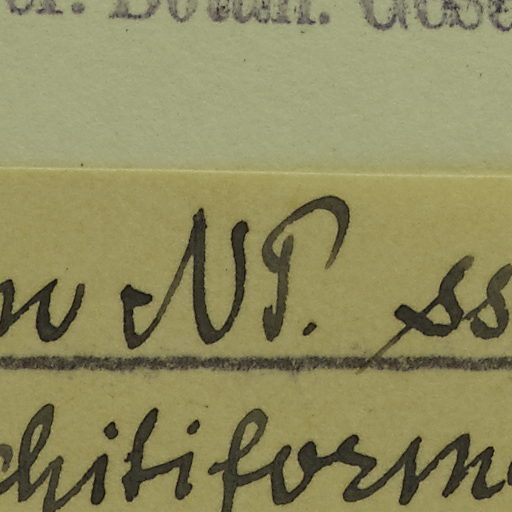 Botan. Gese
NP. ss
chitiform